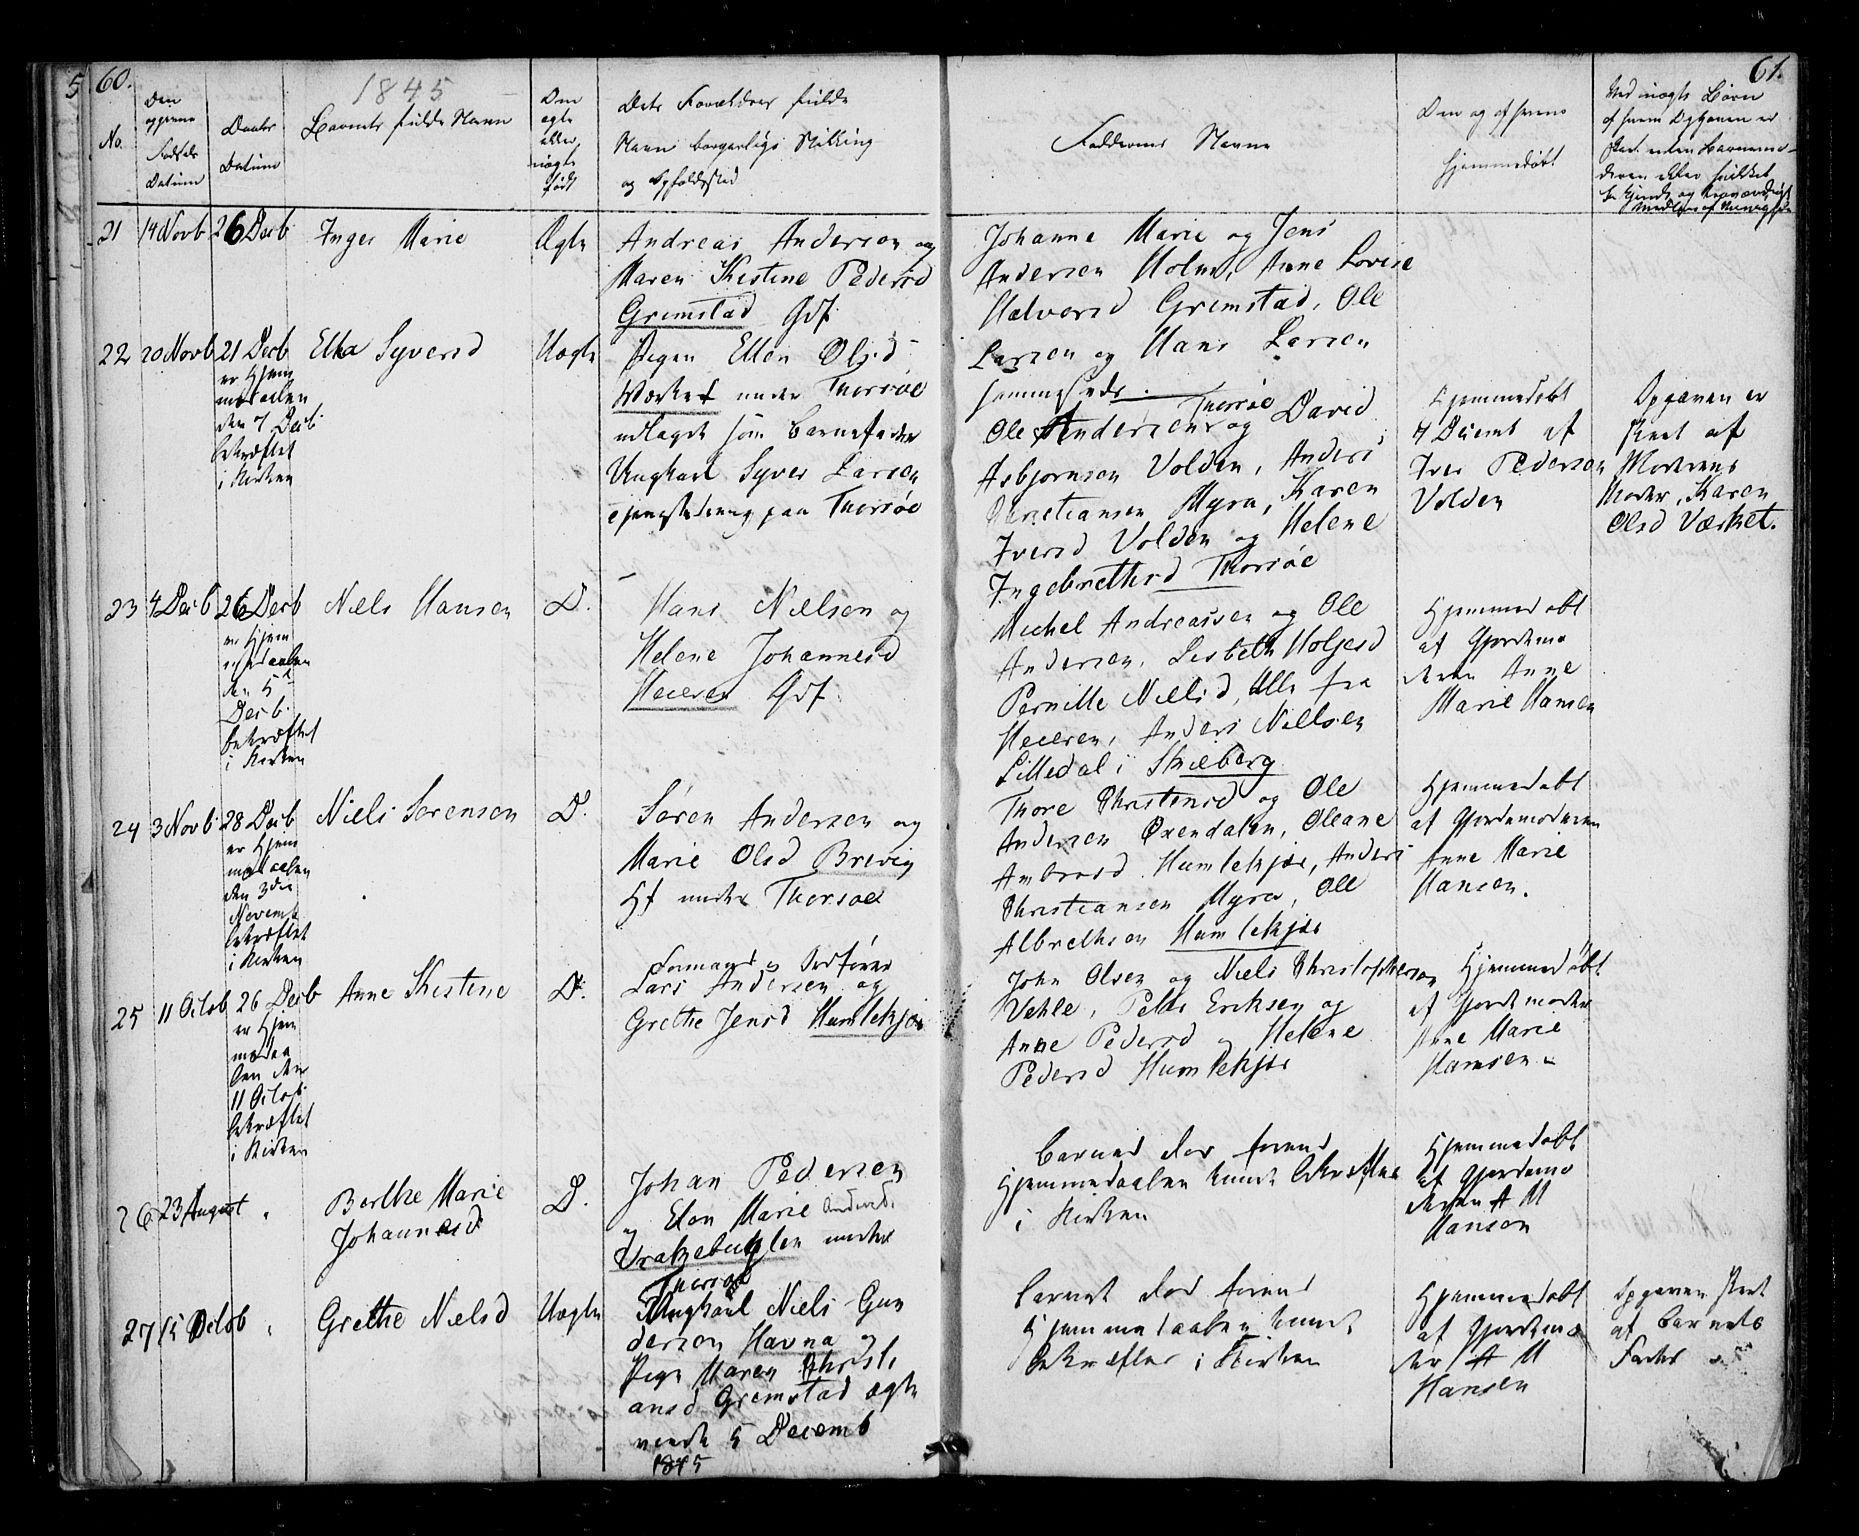 5 60. 1845 61.
No.
Den
opgivne
Fødsels
Datum
Daabs
Datum
Barnets fulde Navn
Den
ægte
eller
uægte
født
Dets Forældres fulde
Navn borgerlige Stilling
og Opholdssted
Faddernes Navne
Den og af hvem
hjemmedøbt
Ved uægte Børn
af hvem Opgaven er
skeet uden Barnemo-
deren eller hvilket
21 14 Novb 26 Decb Inger Marie Ægte
Andreas Andersen og
Maren Kistine Pedersd
Gremstad Gdf
Johanne Marie og Jens
Andersen Holm, Anne Lovise
Halvorsd Gremstad, Ole
Larsen og Hans Larsen
sammesteds
22 20 Novb 21 Decb
er Hjem
medaaben
den 7 Decb
bekræftet
i Kirken
Syversd Uægte
Pigen Ellen Olsd
Værket under Thorsøe
udlagt som Barnefader
Ungkarl Syver Larsen
tjenestedreng paa Thorsøe
Thorsøe
Ole Andersen og David
Asbjornsen Volden, Anders
Christiansen Myra, Karen
Iversd Volden og Helene
Ingebrethsd Thorsøe
Hjemmedøbt
7 Decemb af
Iver Pedersen
Volden
Opgaven er
skeet af
Moderens
Moder, Karen
Olsd Værket.
23 4 Decb 26 Decb
er Hjem
medaaben
den 5
Decb
bekræftet
i Kirken
Niels Hansen D.
Hans Nielsen og
Helene Johannesd
Heieren Gdf
Michel Andreassen og Ole
Andersen, Lisbeth Holjesd
Pernille Nielsd, Alle fra
Heieren, Anders Nielsen
Lilledal i Skieberg
Hjemmedøbt
af Gjordemo
deren Anne
Marie Hansen
24 3 Novb 28 Decb
er Hjem
medaaben
den 3die
Novemb
bekræftet
i Kirken
Niels Sørensen D.
Søren Andersen og
Marie Olsd Brevig
Hf under Thorsøe
Thore Christensd og Ole
Andersen Oxendalen, Oleane
Ambrosd Humlekjær, Anders
Christiansen Myra, Ole
Albrethsen Humlekjær
Hjemmedøbt
af Gjordemoderen
Anne Marie
Hansen.
25 11 Octob 26 Decb
er Hjem
medaa
ben den
11 Octob
bekræftet
i Kirken
Anne Kistine D.
Formand
Lars Andersen og
Grethe Jensd Humlekjær
John Olsen og Niels Christophersen
Vehle, Peder Eriksen og
Anne Pedersd og Helene
Pedersd Humlekjær
Hjemmedøbt
af Gjordemoder
Anne Marie
Hansen
26 23 August
Berthe Marie
Johannesd D.
Johan Pedersen
og Elen Marie Andersd.
under
Thorsøe
Barnet dør forend
Hjemmedaaben kunde bekræftes
i Kirken
Hjemmedøbt
af Gjordemo
deren A M
Hansen
27 15 Octob
Grethe Nielsd Uægte
Ungkarl Niels Gun
dersen Havna og
Pige Maren Christi
ansd Gremstad ægte
viede 5 Decemb
1845
Barnet dør forend
Hjemmedaaben kunde
bekræftes i Kirken
Hjemmedøbt
af Gjordemo
der A M
Hansen
Opgaven skeet
af Barnets
Fader